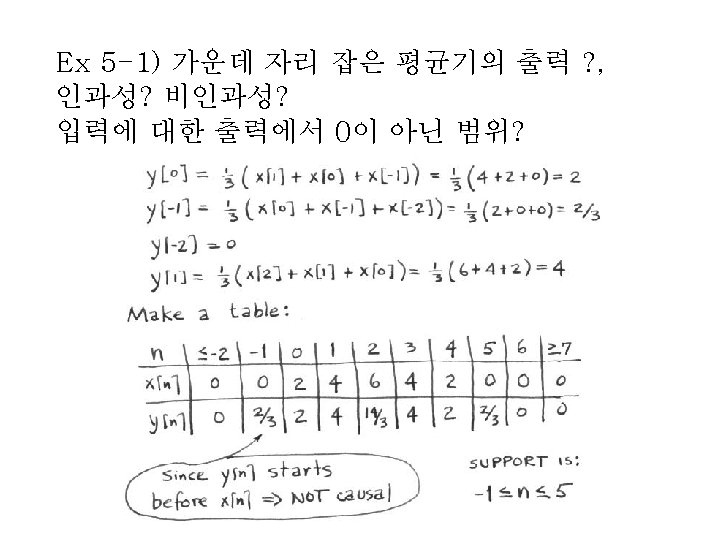 Ex 5-1) 가운데 자리 잡은 평균기의 출력 ? ,
인과성? 비인과성?
입력에 대한 출력에서 0이 아닌 범위?
y[0] = 1/3 (x[1] + x[0] + x[-1]) = 1/3 (4+2+0) = 2
y[-1] = 1/3 (x[0] + x[-1] + x[-2]) = 1/3 (2+0+0) = 2/3
y[-2] = 0
y[1] = 1/3 (x[2] + x[1] + x[0]) = 1/3 (6+4+2) = 4
Make a table:
n ≤-2 -1 0 1 2 3 4 5 6 ≥7
x[n] 0 0 2 4 6 4 2 0 0 0
y[n] 0 2/3 2 4 14/3 4 2 2/3 0 0
Since y[n] starts
before x[n] ⇒ NOT causal
SUPPORT IS:
-1 ≤ n ≤ 5